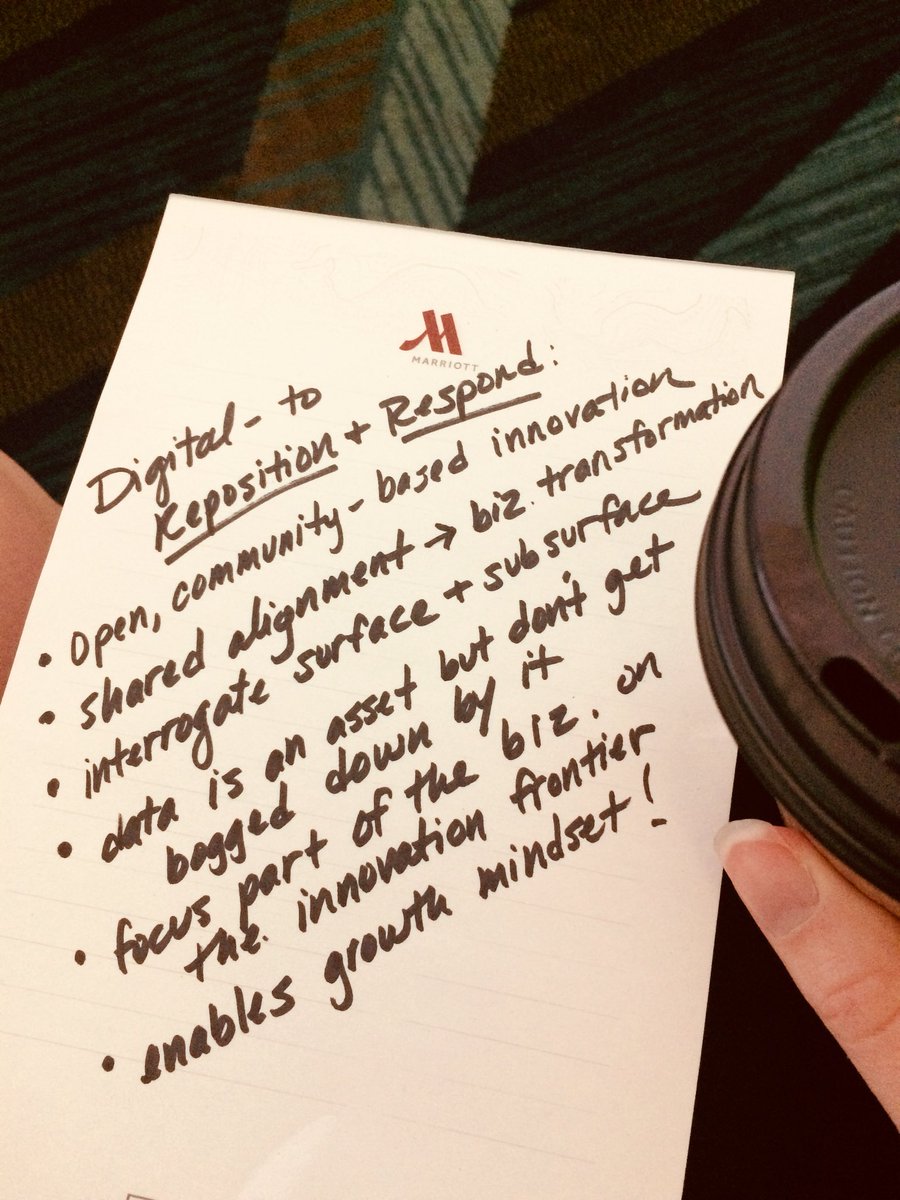 MARRIOTT
Digital - to
Reposition + Respond:
• Open, community-based innovation
• shared alignment → biz. transformation
• interrogate surface + subsurface
• data is an asset but don't get
bogged down by it
• focus part of the biz. on
the innovation frontier
• enables growth mindset!
CAUTION